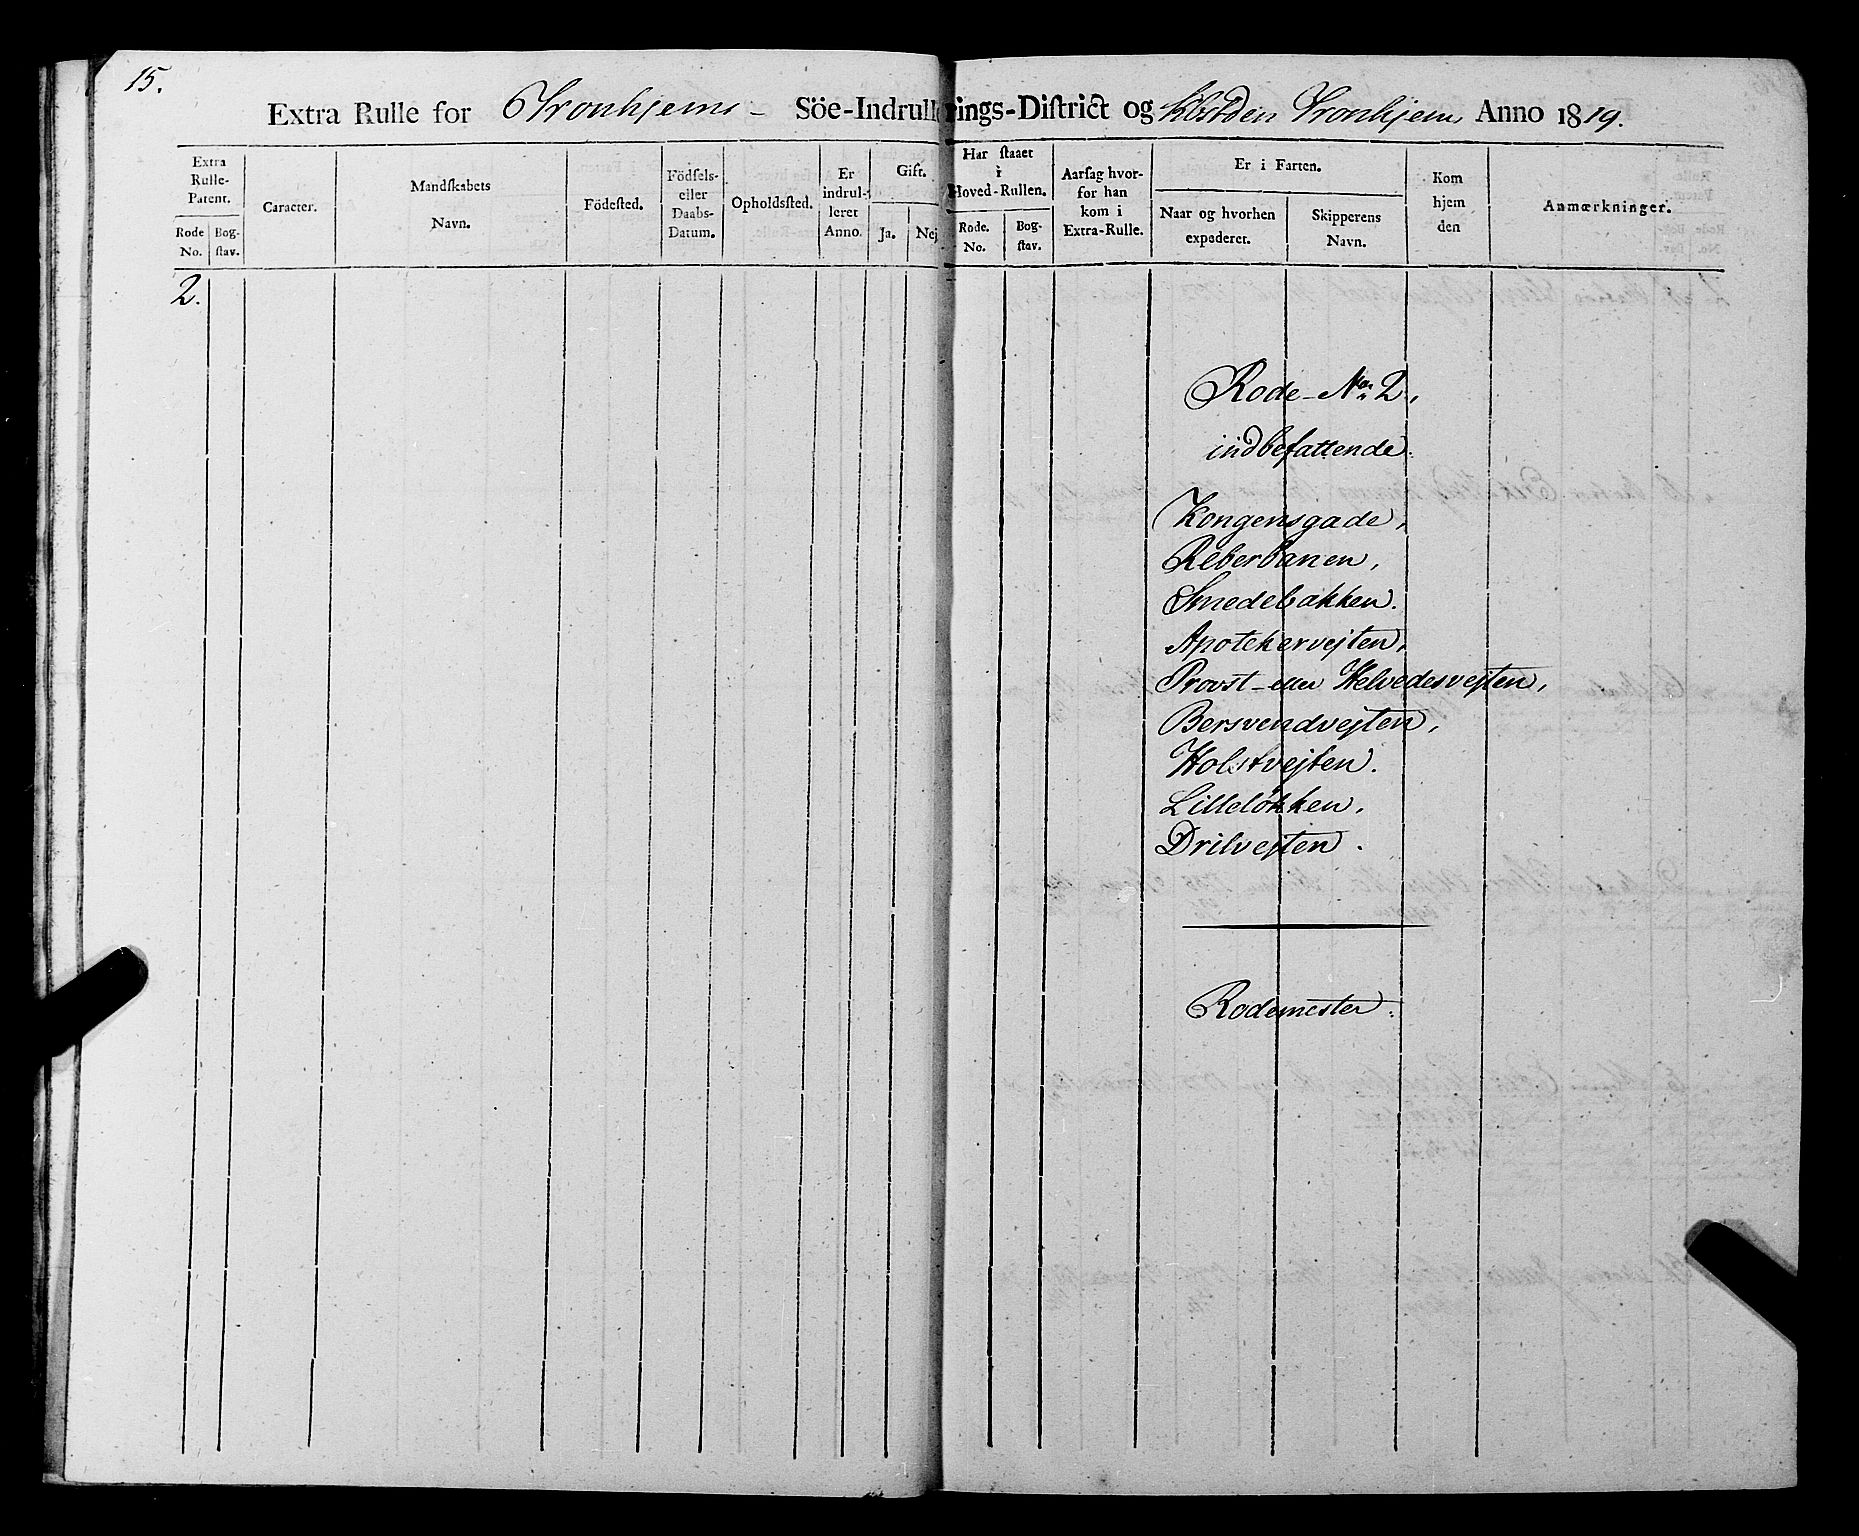 15.
Extra Rulle for Tronhjems - Söe-Indrullerings-District og Tronhjem Anno 1819.
Extra Rulle-Patent.
Rode No.
Bog-stav.
Caracter.
Mandskabets Navn.
Födested.
Födsels- eller Daabs-Datum.
Opholdssted.
Er indrul-leret Anno.
Gift.
Ja.
Nej
Har staaet i Hoved-Rullen.
Rode. No.
Bog-stav.
Aarsag hvor-for han kom i Extra-Rulle.
Er i Farten.
Naar og hvorhen expederet.
Skipperens Navn.
Kom hjem den
Anmærkninger.
2.
Rode No. 2,
indbefattende.
Kongensgade,
Reberbanen,
Smedebakken.
Apotekervejten,
Provst- eller Helvedesvejten,
Bersvendvejten,
Holstvejten.
Lilleløkken,
Drilvejten.
Rodemester.